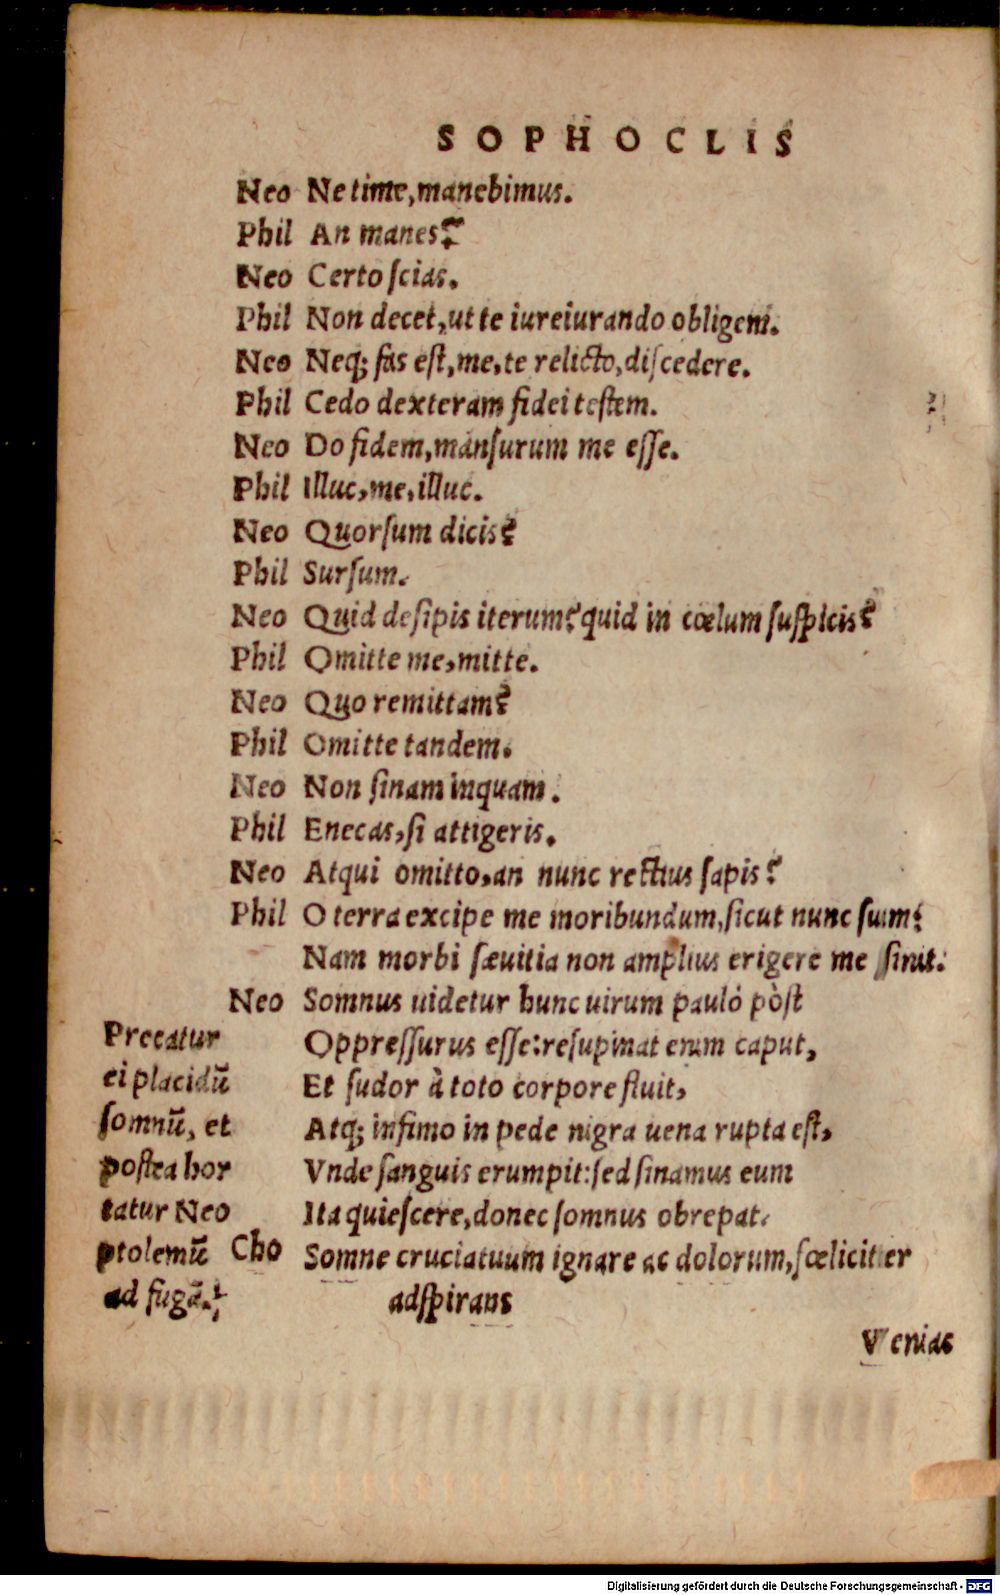 SOPHOCLIS
Neo Ne time, manebimus.
Phil An manes?
Neo Certo ſcias.
Phil Non decet, ut te iureiurando obligem.
Neo Neq; fas eſt, me, te relicto, diſcedere.
Phil Cedo dexteram fidei teſtem.
Neo Do fidem, manſurum me eſſe.
Phil Illuc, me, illuc.
Neo Quorſum dicis?
Phil Surſum.
Neo Quid deſipis iterum? quid in cœlum ſuſpicis?
Phil Omitte me, mitte.
Neo Quo remittam?
Phil Omitte tandem.
Neo Non ſinam inquam.
Phil Enecas, ſi attigeris.
Neo Atqui omitto, an nunc rectius ſapis?
Phil O terra excipe me moribundum, ſicut nunc ſum:
Nam morbi ſæuitia non amplius erigere me ſinit.
Neo Somnus uidetur hunc uirum pauló pòſt
Oppreſſurus eſſe: reſupinat enim caput,
Et ſudor à toto corpore fluit,
Atq; infimo in pede nigra uena rupta eſt,
Vnde ſanguis erumpit: ſed ſinamus eum
Ita quieſcere, donec ſomnus obrepat.
Cho Somne cruciatuum ignare ac dolorum, fœliciter
adſpirans
Precatur
ei placidū
ſomnū, et
poſtea hor
tatur Neo
ptolemū
ad fugā.
Venias
Digitalisierung gefördert durch die Deutsche Forschungsgemeinschaft - DFG